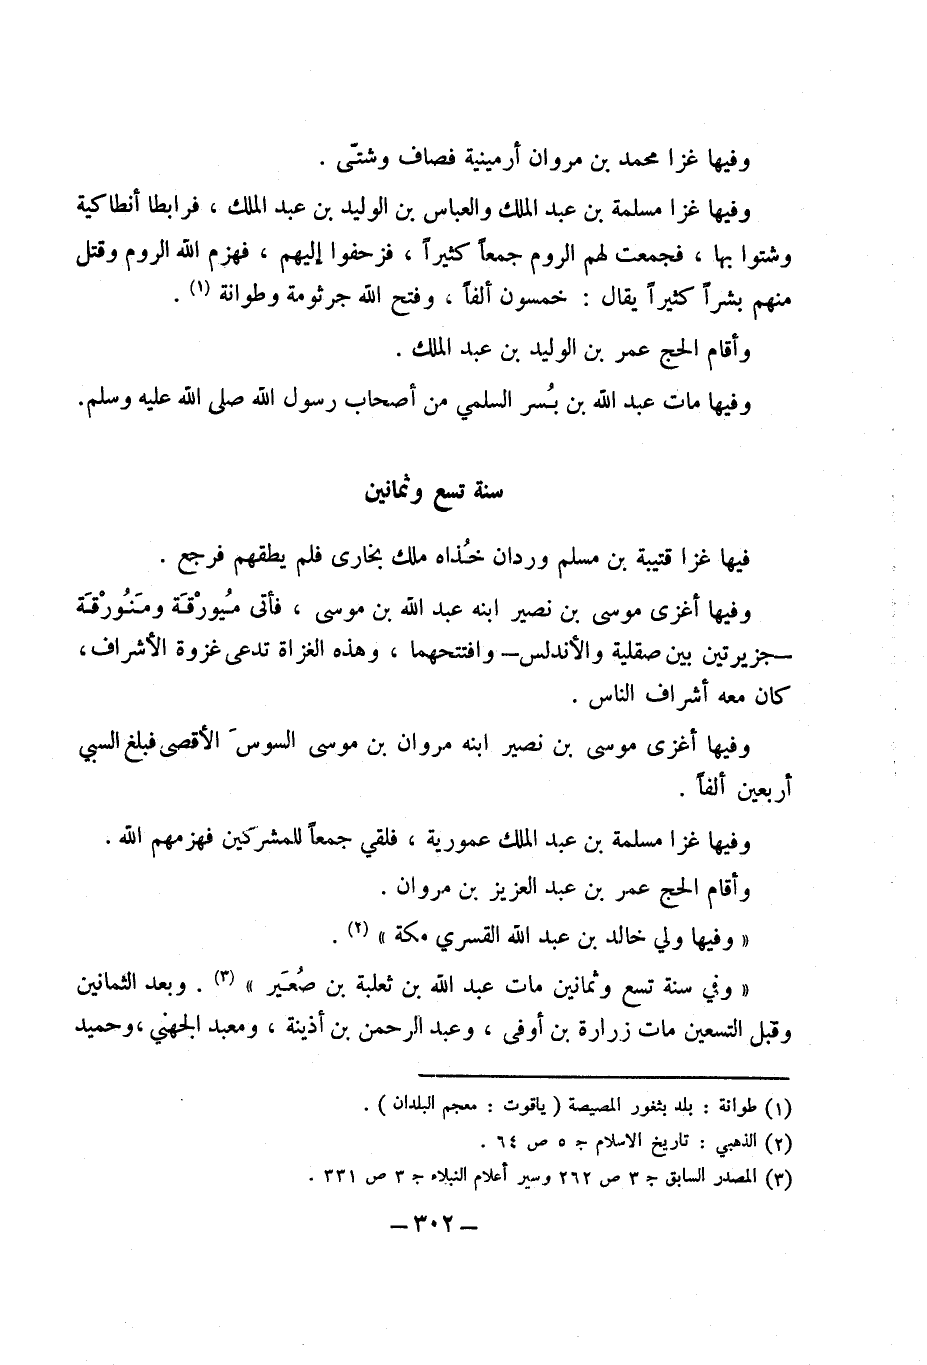 وفيها غزا محمد بن مروان أرمينية فصاف وشتّى .
وفيها غزا مسلمة بن عبد الملك والعباس بن الوليد بن عبد الملك ، فرابطا أنطاكية
وشتوا بها ، فجمعت لهم الروم جمعاً كثيراً ، فزحفوا إليهم ، فهزم الله الروم وقتل
منهم بشراً كثيراً يقال : خمسون ألفاً ، وفتح الله جرثومة وطوانة (١) .
وأقام الحج عمر بن الوليد بن عبد الملك .
وفيها مات عبد الله بن بُسر السلمي من أصحاب رسول الله صلى الله عليه وسلم.
سنة تسع وثمانين
فيها غزا قتيبة بن مسلم وردان خُذاه ملك بخارى فلم يطقهم فرجع .
وفيها أغزى موسى بن نصير ابنه عبد الله بن موسى ، فأتى مَيُورْقَة ومَنُورْقَة
–جزيرتين بين صقلية والأندلس– وافتتحهما ، وهذه الغزاة تدعى غزوة الأشراف،
كان معه أشراف الناس .
وفيها أغزى موسى بن نصير ابنه مروان بن موسى السوسَ الأقصى فبلغ السبي
أربعين ألفاً .
وفيها غزا مسلمة بن عبد الملك عمورية ، فلقي جمعاً للمشركين فهزمهم الله .
وأقام الحج عمر بن عبد العزيز بن مروان .
« وفيها ولي خالد بن عبد الله القسري مكة » (٢) .
« وفي سنة تسع وثمانين مات عبد الله بن ثعلبة بن صُعَير » (٣) . وبعد الثمانين
وقبل التسعين مات زرارة بن أوفى ، وعبد الرحمن بن أذينة ، ومعبد الجهني ،وحميد
(١) طوانة : بلد بثغور المصيصة ( ياقوت : معجم البلدان ) .
(٢) الذهبي : تاريخ الاسلام ج ٥ ص ٦٤ .
(٣) المصدر السابق ج ٣ ص ٢٦٢ وسير أعلام النبلاء ج ٣ ص ٣٣١ .
– ٣٠٢ –